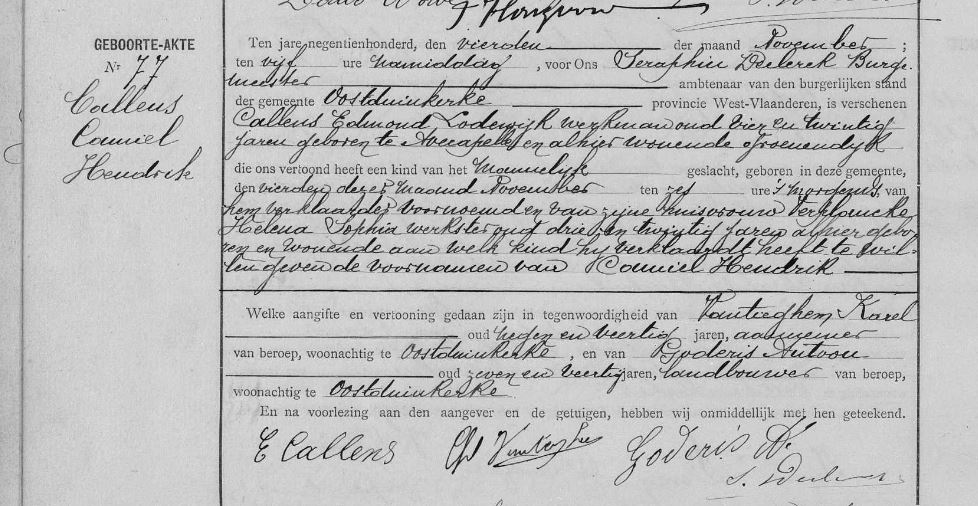 GEBOORTE-AKTE
Nr 77
Callens
Camiel
Hendrik
Ten jare negentienhonderd, den vierden der maand November ;
ten vijf ure namiddag , voor Ons Seraphin Declerck Burge
meester ambtenaar van den burgerlijken stand
der gemeente Oostduinkerke provincie West-Vlaanderen, is verschenen
Callens Edmond Lodewijk werkman oud vier en twintig
jaren geboren te Avecapelle en alhier wonende Groenendyk
die ons vertoond heeft een kind van het Mannelijk geslacht, geboren in deze gemeente,
den vierden dezer maand November ten zes ure 's morgens, van
hem verklaarder voornoemd en van zijne huisvrouw Verplancke
Helena Sophia werkster oud drie en twintig jaren alhier gebo-
ren en wonende aan welk kind hy verklaardt heeft te wil-
len geven de voornamen van Camiel Hendrik
Welke aangifte en vertooning gedaan zijn in tegenwoordigheid van Vantieghem Karel
oud negen en veertig jaren, aannemer
van beroep, woonachtig te Oostduinkerke , en van Goderis Antoon
oud zeven en veertig jaren, landbouwer van beroep,
woonachtig te Oostduinkerke
En na voorlezing aan den aangever en de getuigen, hebben wij onmiddellijk met hen geteekend.
E Callens
Goderis A.